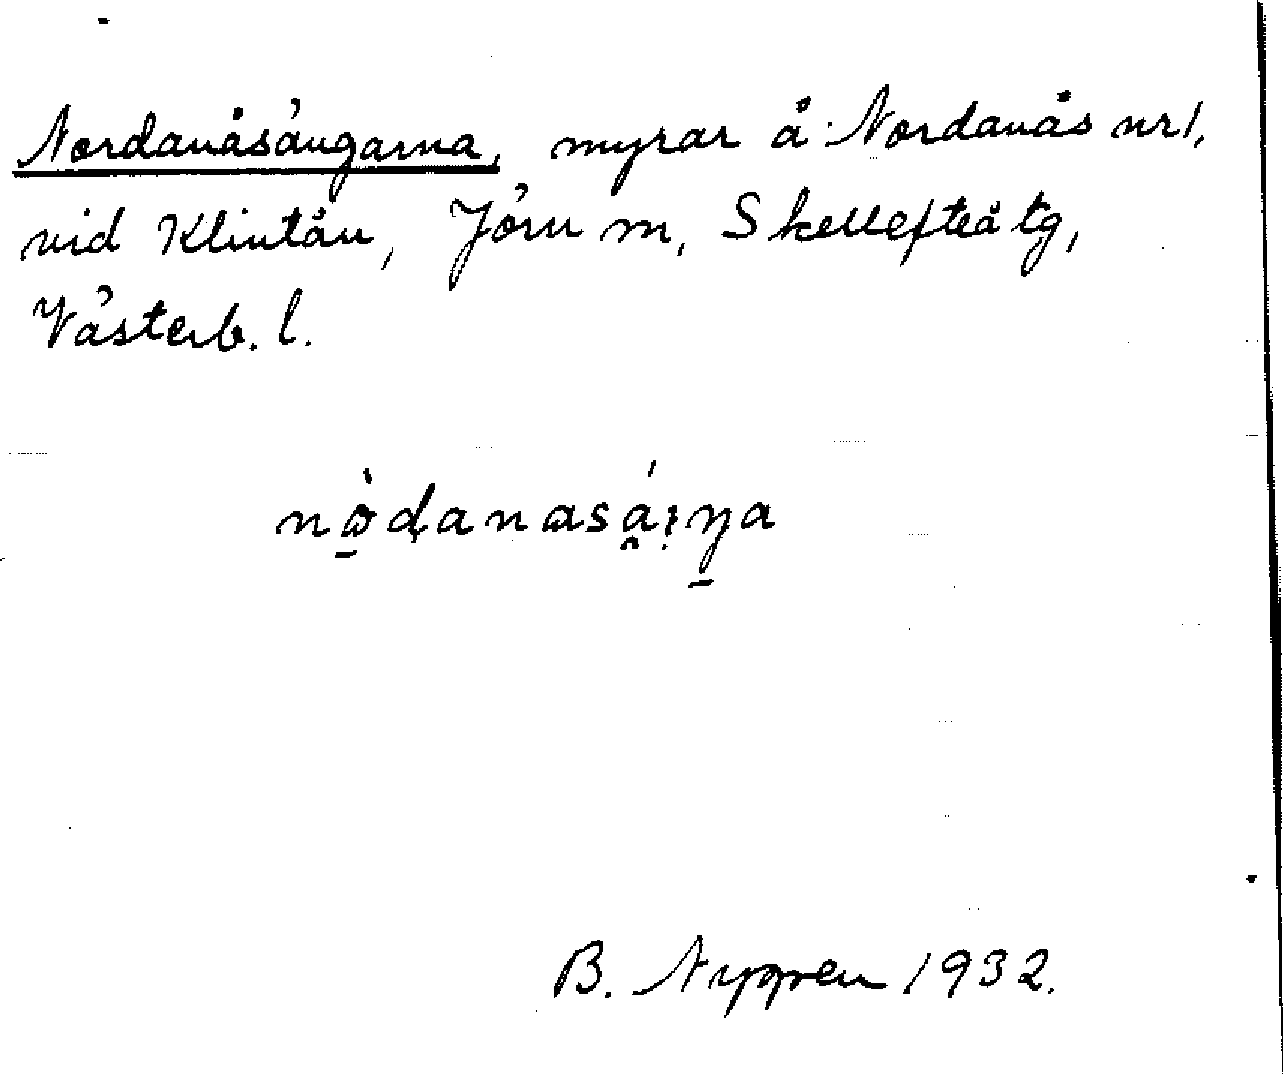 Nordanåsängarna, myrar å Nordanås nr 1,
vid Klintån, Jörn sn, Skellefteå tg,
Västerb. l.
nò̱ḍanasá̯:ŋ̱a
B. Nygren 1932.